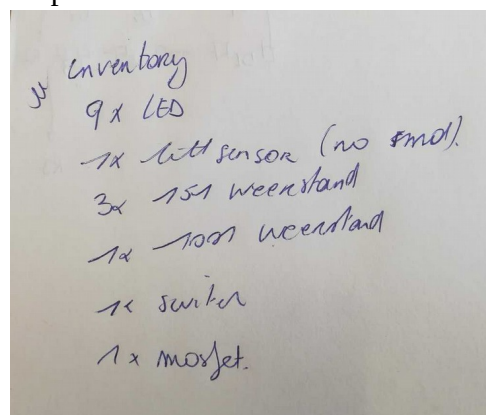 inventory
9 x LED
1x tilt sensor (no smd).
3x 151 weerstand
1x 1001 weerstand
1x switch
1 x mosfet.